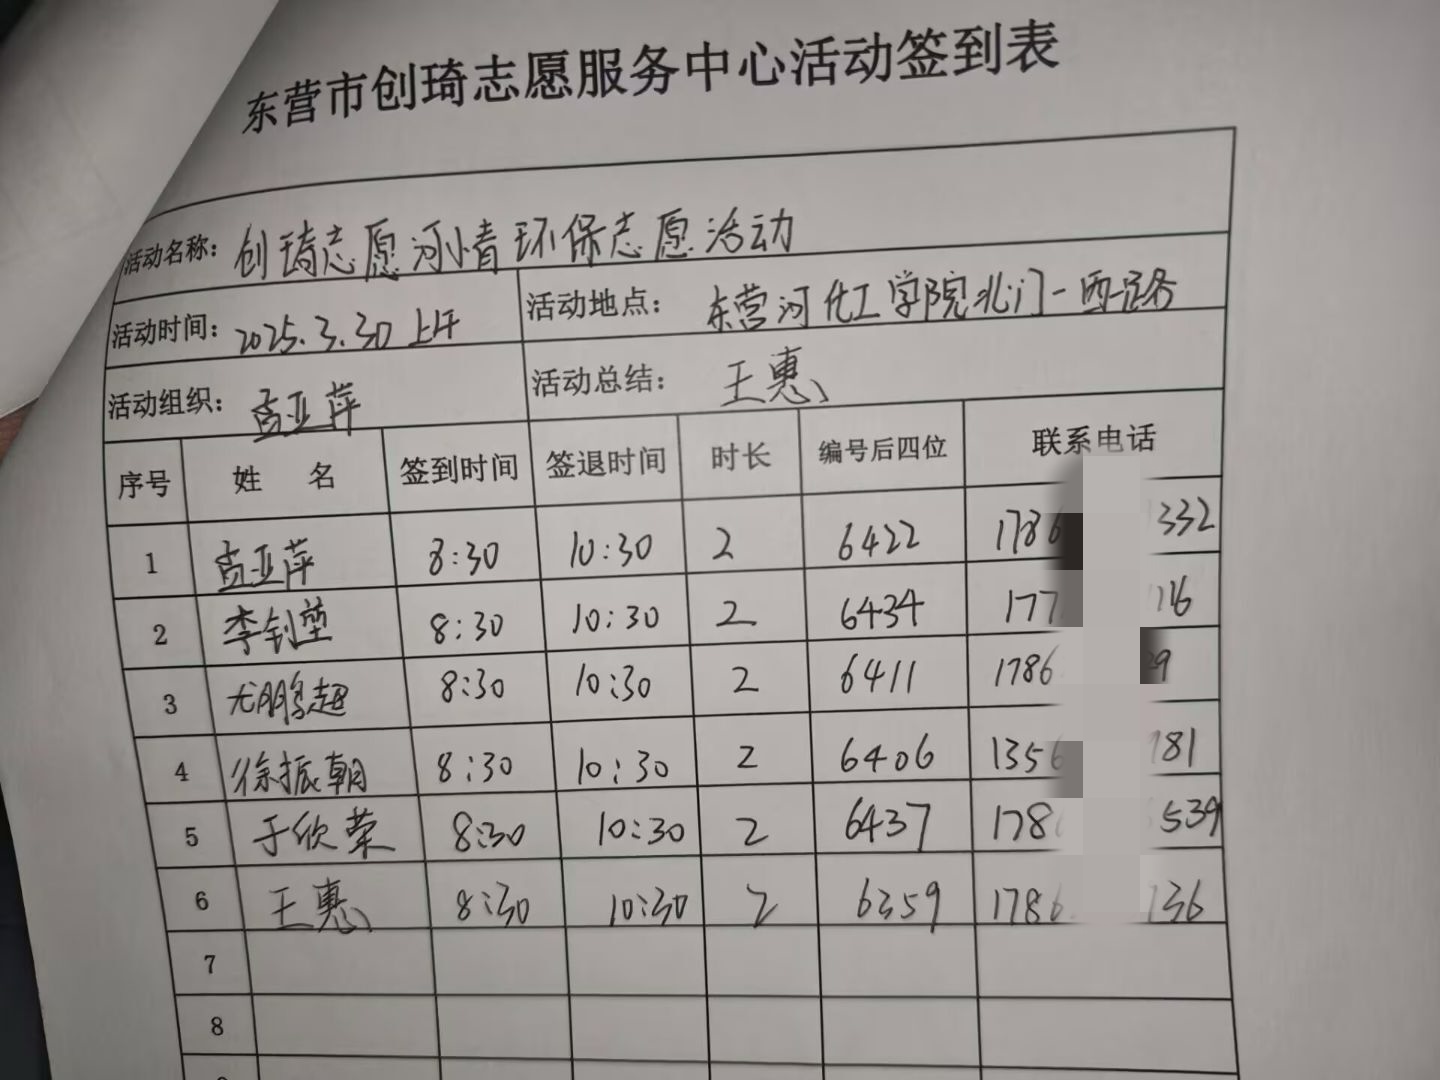 东营市创琦志愿服务中心活动签到表
活动名称: 创琦志愿河小青环保志愿活动
活动时间: 2025.3.30 上午 活动地点: 东营河化工学院北门-西二路
活动组织: 孟亚萍 活动总结: 王惠
序号 姓 名 签到时间 签退时间 时长 编号后四位 联系电话
1 孟亚萍 8:30 10:30 2 6422 1786 332
2 李钊堃 8:30 10:30 2 6434 177 116
3 尤鹏超 8:30 10:30 2 6411 1786 29
4 徐振朝 8:30 10:30 2 6406 1356 781
5 于欣荣 8:30 10:30 2 6437 178 539
6 王惠 8:30 10:30 2 6359 1786 136
7
8